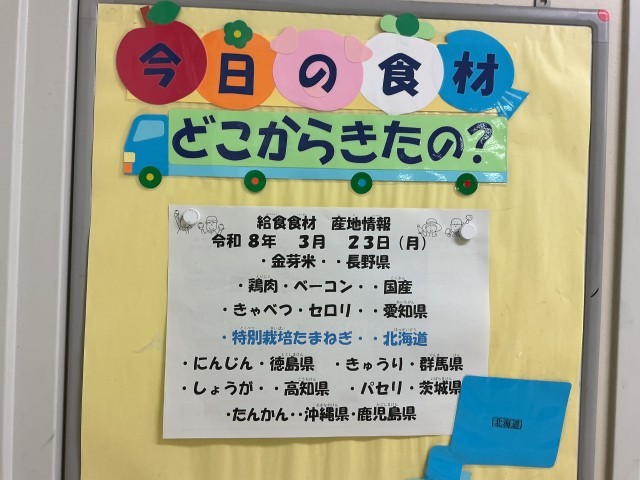 今日の食材
どこからきたの?
給食食材 産地情報
令和 8年 3月 23日(月)
・金芽米・・長野県
・鶏肉・ベーコン・・国産
・きゃべつ・セロリ・・愛知県
・特別栽培たまねぎ・・北海道
・にんじん・徳島県 ・きゅうり・群馬県
・しょうが・・高知県 ・パセリ・茨城県
・たんかん・・沖縄県・鹿児島県
北海道